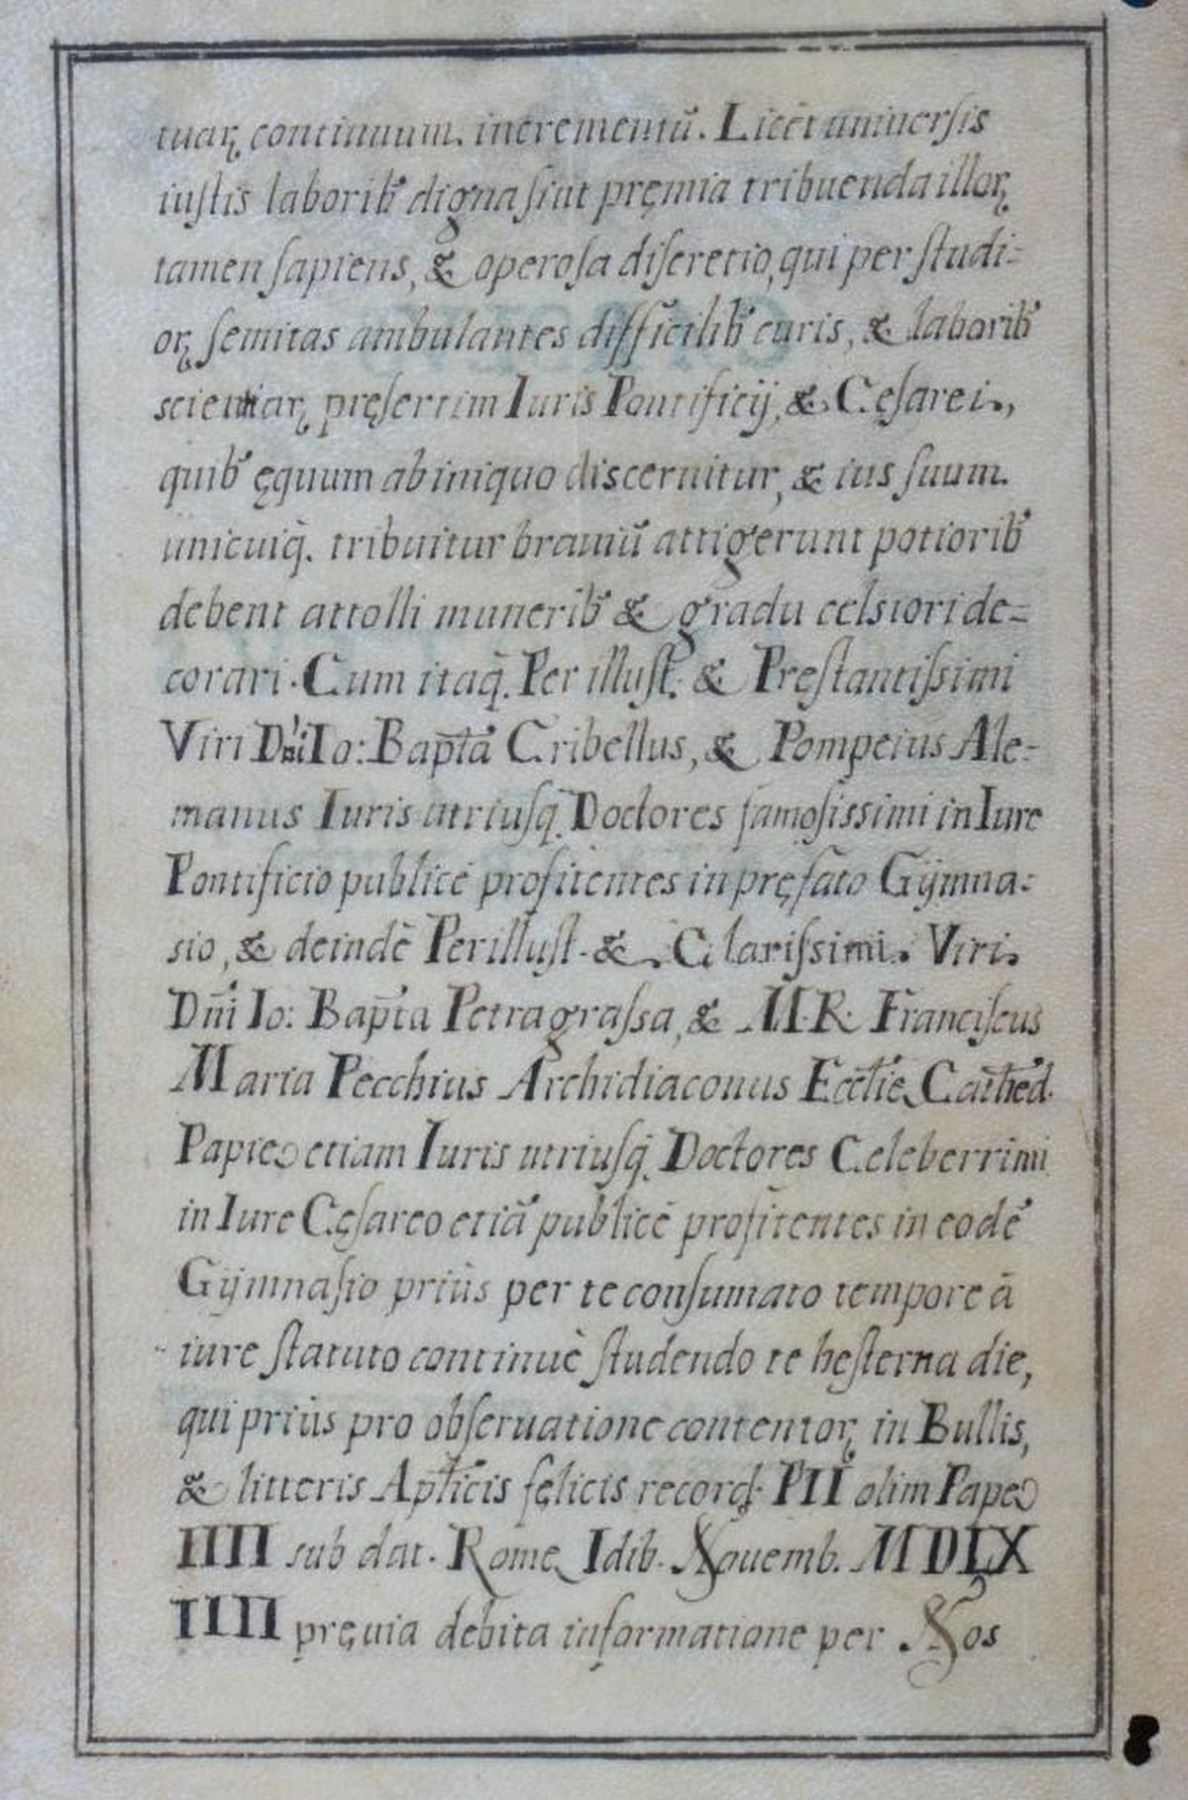 tuaꝝ continuum. incrementũ. Licèt uniuersis
iustis laborib' digna sint pręmia tribuenda illoꝝ
tamen sapiens, & operosa discretio, qui per studi-
oꝝ semitas ambulantes difficilib' curis, & laborib'
scientiaꝝ pręsertim Iuris Pontificij, & Cęsarei.,
quib' ęquum ab iniquo discernitur, & ius suum.
unicuiq̃. tribuitur brauiũ attigerunt potiorib'
debent attolli munerib' & gradu celsiori de=
corari. Cum itaq̃. Per illust. & Pręstantissimi
Viri Dñi Io: Bapt̃a Cribellus, & Pompeius Ale-
manus Iuris utriusq̃. Doctores famosissimi in Iure
Pontificio publicè profitentes in pręfato Gÿmna=
sio, & deindè Perillust. & Clarissimi. Viri.
Dñi Io: Bapt̃a Petragrassa, & M. R. Franciscus
Maria Pecchius Archidiaconus Eccl̃ię Cathed.
Papię etiam Iuris utriusq̃. Doctores Celeberrimi
in Iure Cęsareo etiã publicè profitentes in eodẽ
Gÿmnasio priùs per te consumato tempore à
iure statuto continuè studendo te hesterna die,
qui priùs pro obseruatione contentoꝝ in Bullis,
& litteris Apl̃icis fęlicis record. PII olim Papę
IIII sub dat. Romę Idib. Nouemb. MDLX
IIII pręuia debita informatione per Nos